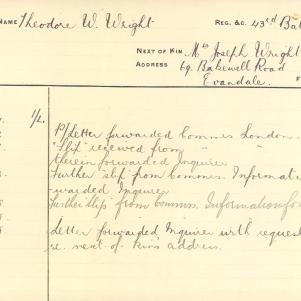 NAME Theodore W. Wright REG. &C. 43rd Bat
NEXT OF KIN Mrs Joseph Wright
ADDRESS 69 Bakewell Road
Evandale.
1/2. P/Letter forwarded Commrs London
"Slip" received from " "
therein forwarded Inquirer
Further "slip" from Commrs. Informati
warded Inquirer
Further "slip" from Commrs. Information for
Letter forwarded Inquirer with request
re. next of kin's address.